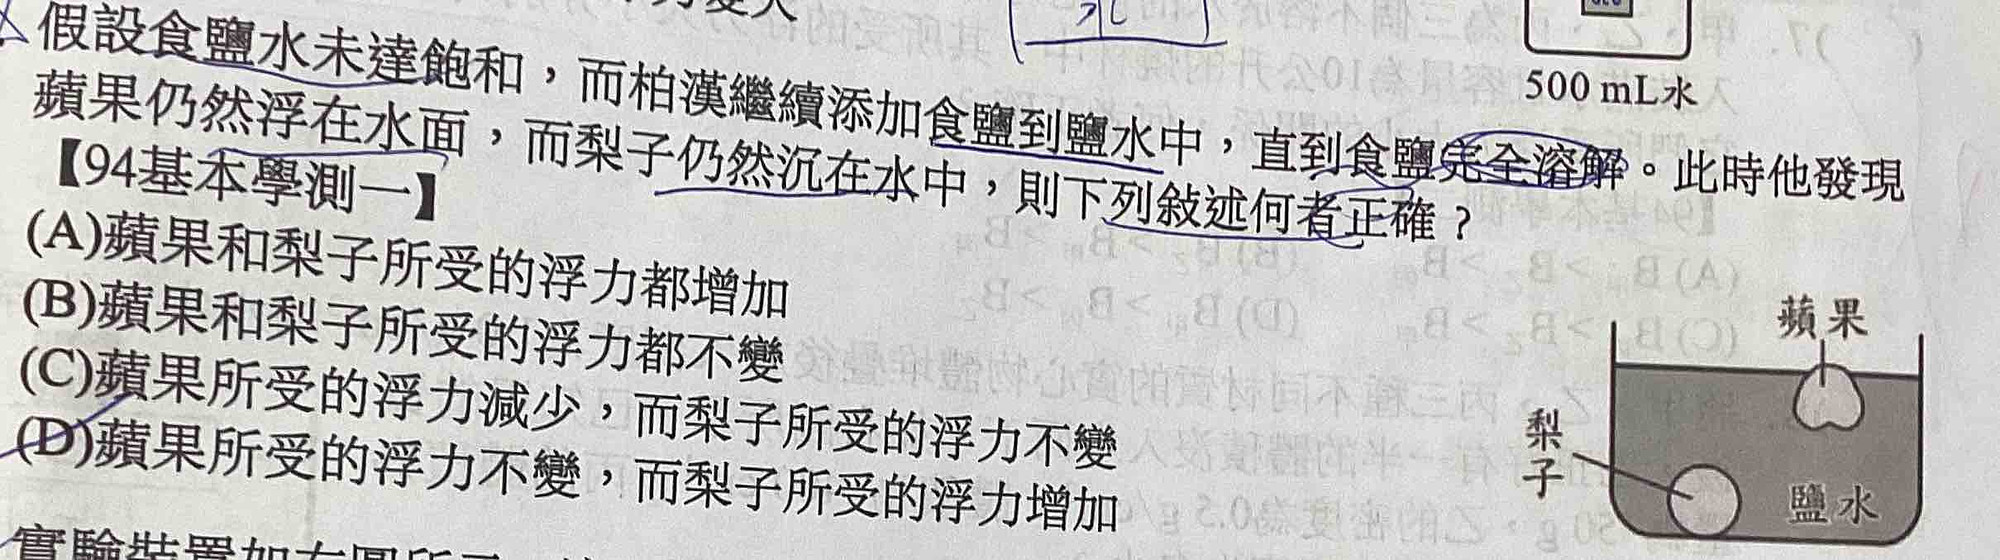 500 mL水
假設食鹽水未達飽和，而柏漢繼續添加食鹽到鹽水中，直到食鹽完全溶解。此時他發現
蘋果仍然浮在水面，而梨子仍然沉在水中，則下列敍述何者正確？
【94基本學測一】
(A)蘋果和梨子所受的浮力都增加
(B)蘋果和梨子所受的浮力都不變
(C)蘋果所受的浮力減少，而梨子所受的浮力不變
(D)蘋果所受的浮力不變，而梨子所受的浮力增加
蘋果
梨子
鹽水